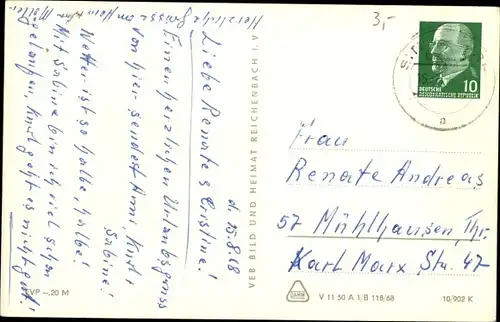 3,-
Herzliche Grüsse
d. 15.8.68
Liebe Renate & Cristine!
Einen herzlichen Urlaubsgruss
von hier sendest Anni, Kurt &
Sabine!
Wetter ist so halbe, halbe!
Mit Sabine bin ich viel schon
gelaufen, Kurt geht es nicht gut!
EVP -.20 M
VEB BILD UND HEIMAT REICHENBACH I. V.
10
DEUTSCHE
DEMOKRATISCHE REPUBLIK
a
Frau
Renate Andreas
57 Mühlhausen, Thr.
Karl Marx Str. 47
V 11 50 A 1/B 118/68
10/902 K